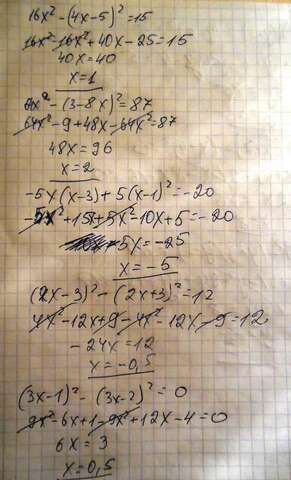 16x² - (4x-5)² = 15
16x² - 16x² + 40x - 25 = 15
40x = 40
x = 1
64x² - (3-8x)² = 87
64x² - 9 + 48x - 64x² = 87
48x = 96
x = 2
-5x(x-3) + 5(x-1)² = -20
-5x² + 15x + 5x² - 10x + 5 = -20
5x = -25
x = -5
(2x-3)² - (2x+3)² = 12
4x² - 12x + 9 - 4x² - 12x - 9 = 12
-24x = 12
x = -0,5
(3x-1)² - (3x-2)² = 0
9x² - 6x + 1 - 9x² + 12x - 4 = 0
6x = 3
x = 0,5